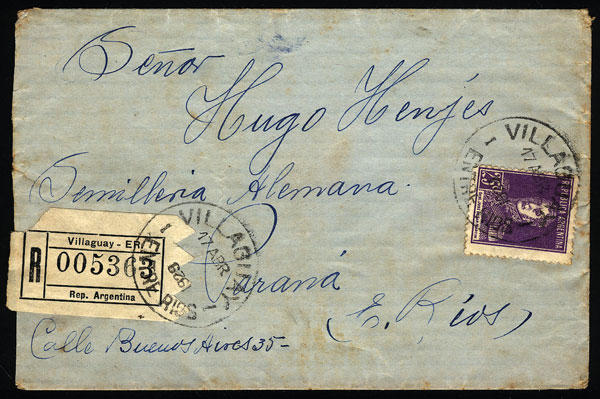 Señor
Hugo Henjes
Semilleria Alemana.
Paraná
(E. Ríos)
Calle Buenos Aires 35-
Villaguay - ER
R 00536
Rep. Argentina
VILLAG
17 ABR 1929
ENTRE RIOS
VILLAG
17 A
25
ARGENTINA